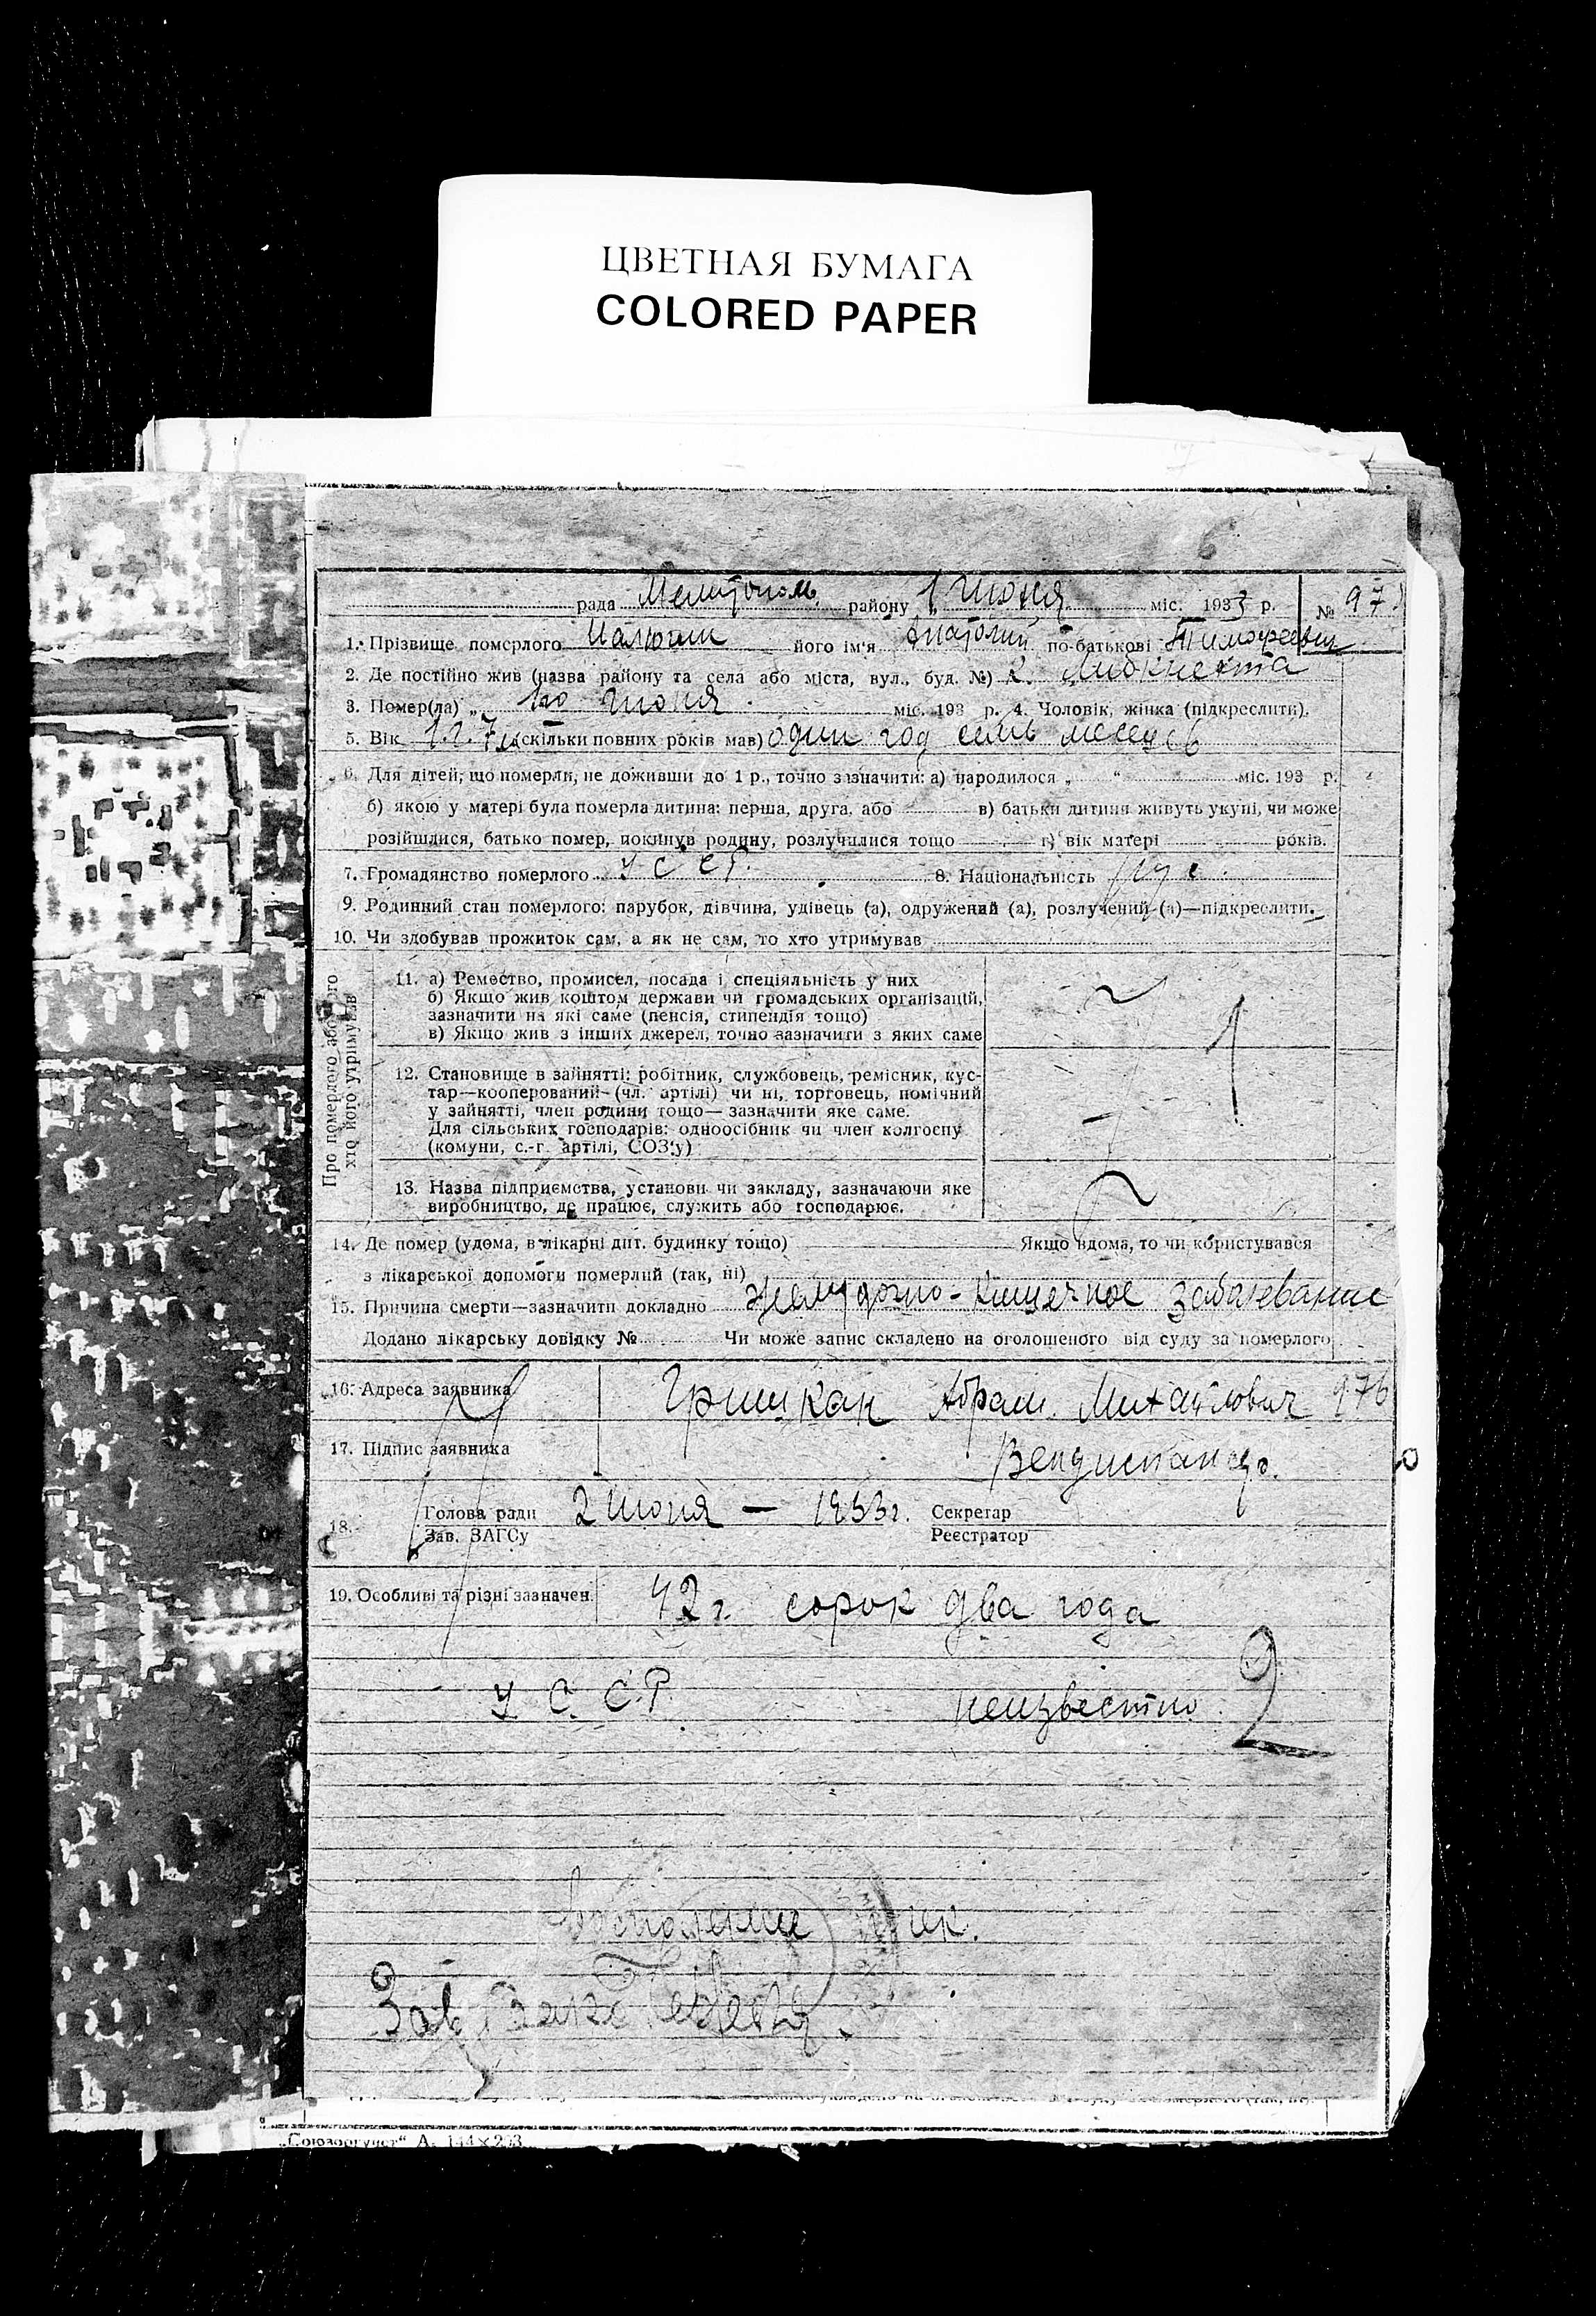 ЦВЕТНАЯ БУМАГА
COLORED PAPER
рада Мелитополь району 1 июня міс. 1933 р. № 97
1. Прізвище померлого його ім'я Анатолий по-батькові Тимофеевич
2. Де постійно жив (назва району та села або міста, вул., буд. №) Либкнехта
3. Помер(ла) „ 1го июня міс. 193 р. 4. Чоловік, жінка (підкреслити).
5. Вік 1.г. 7м (скільки повних років мав) один год семь месецев
6. Для дітей, що померли, не доживши до 1 р., точно зазначити: а) народилося „ “ міс. 193 р.
б) якою у матері була померла дитина: перша, друга, або в) батьки дитини живуть укупі, чи може
розійшлися, батько помер, покинув родину, розлучилися тощо г) вік матері років.
7. Громадянство померлого УССР. 8. Національність рус.
9. Родинний стан померлого: парубок, дівчина, удівець (а), одружений (а), розлучений (а)—підкреслити.
10. Чи здобував прожиток сам, а як не сам, то хто утримував
Про померлого або того
хто його утримував
11. а) Ремество, промисел, посада і спеціяльність у них
б) Якщо жив коштом держави чи громадських організацій,
зазначити на які саме (пенсія, стипендія тощо)
в) Якщо жив з інших джерел, точно зазначити з яких саме
1
12. Становище в зайнятті: робітник, службовець, ремісник, кус-
тар—кооперований (чл. артілі) чи ні, торговець, помічний
у зайнятті, член родини тощо— зазначити яке саме.
Для сільських господарів: одноосібник чи член колгоспу
(комуни, с.-г. артілі, СОЗ'у)
13. Назва підприємства, установи чи закладу, зазначаючи яке
виробництво, де працює, служить або господарює.
14. Де помер (удома, в лікарні дит. будинку тощо) Якщо вдома, то чи користувався
з лікарської допомоги померлий (так, ні)
15. Причина смерти—зазначити докладно Желудочно-Кишечное заболевание
Додано лікарську довідку № Чи може запис складено на оголошеного від суду за померлого
16. Адреса заявника Абрам Михайлович 976
17. Підпис заявника Вендиспансер.
18. Голова ради 2 июня — 1933г. Секретар
Зав. ЗАГСу Реєстратор
19. Особливі та різні зазначен. 42г. сорок два года
У С. С.Р. неизвестно 2
Зав
„Союзоргучет“ А.